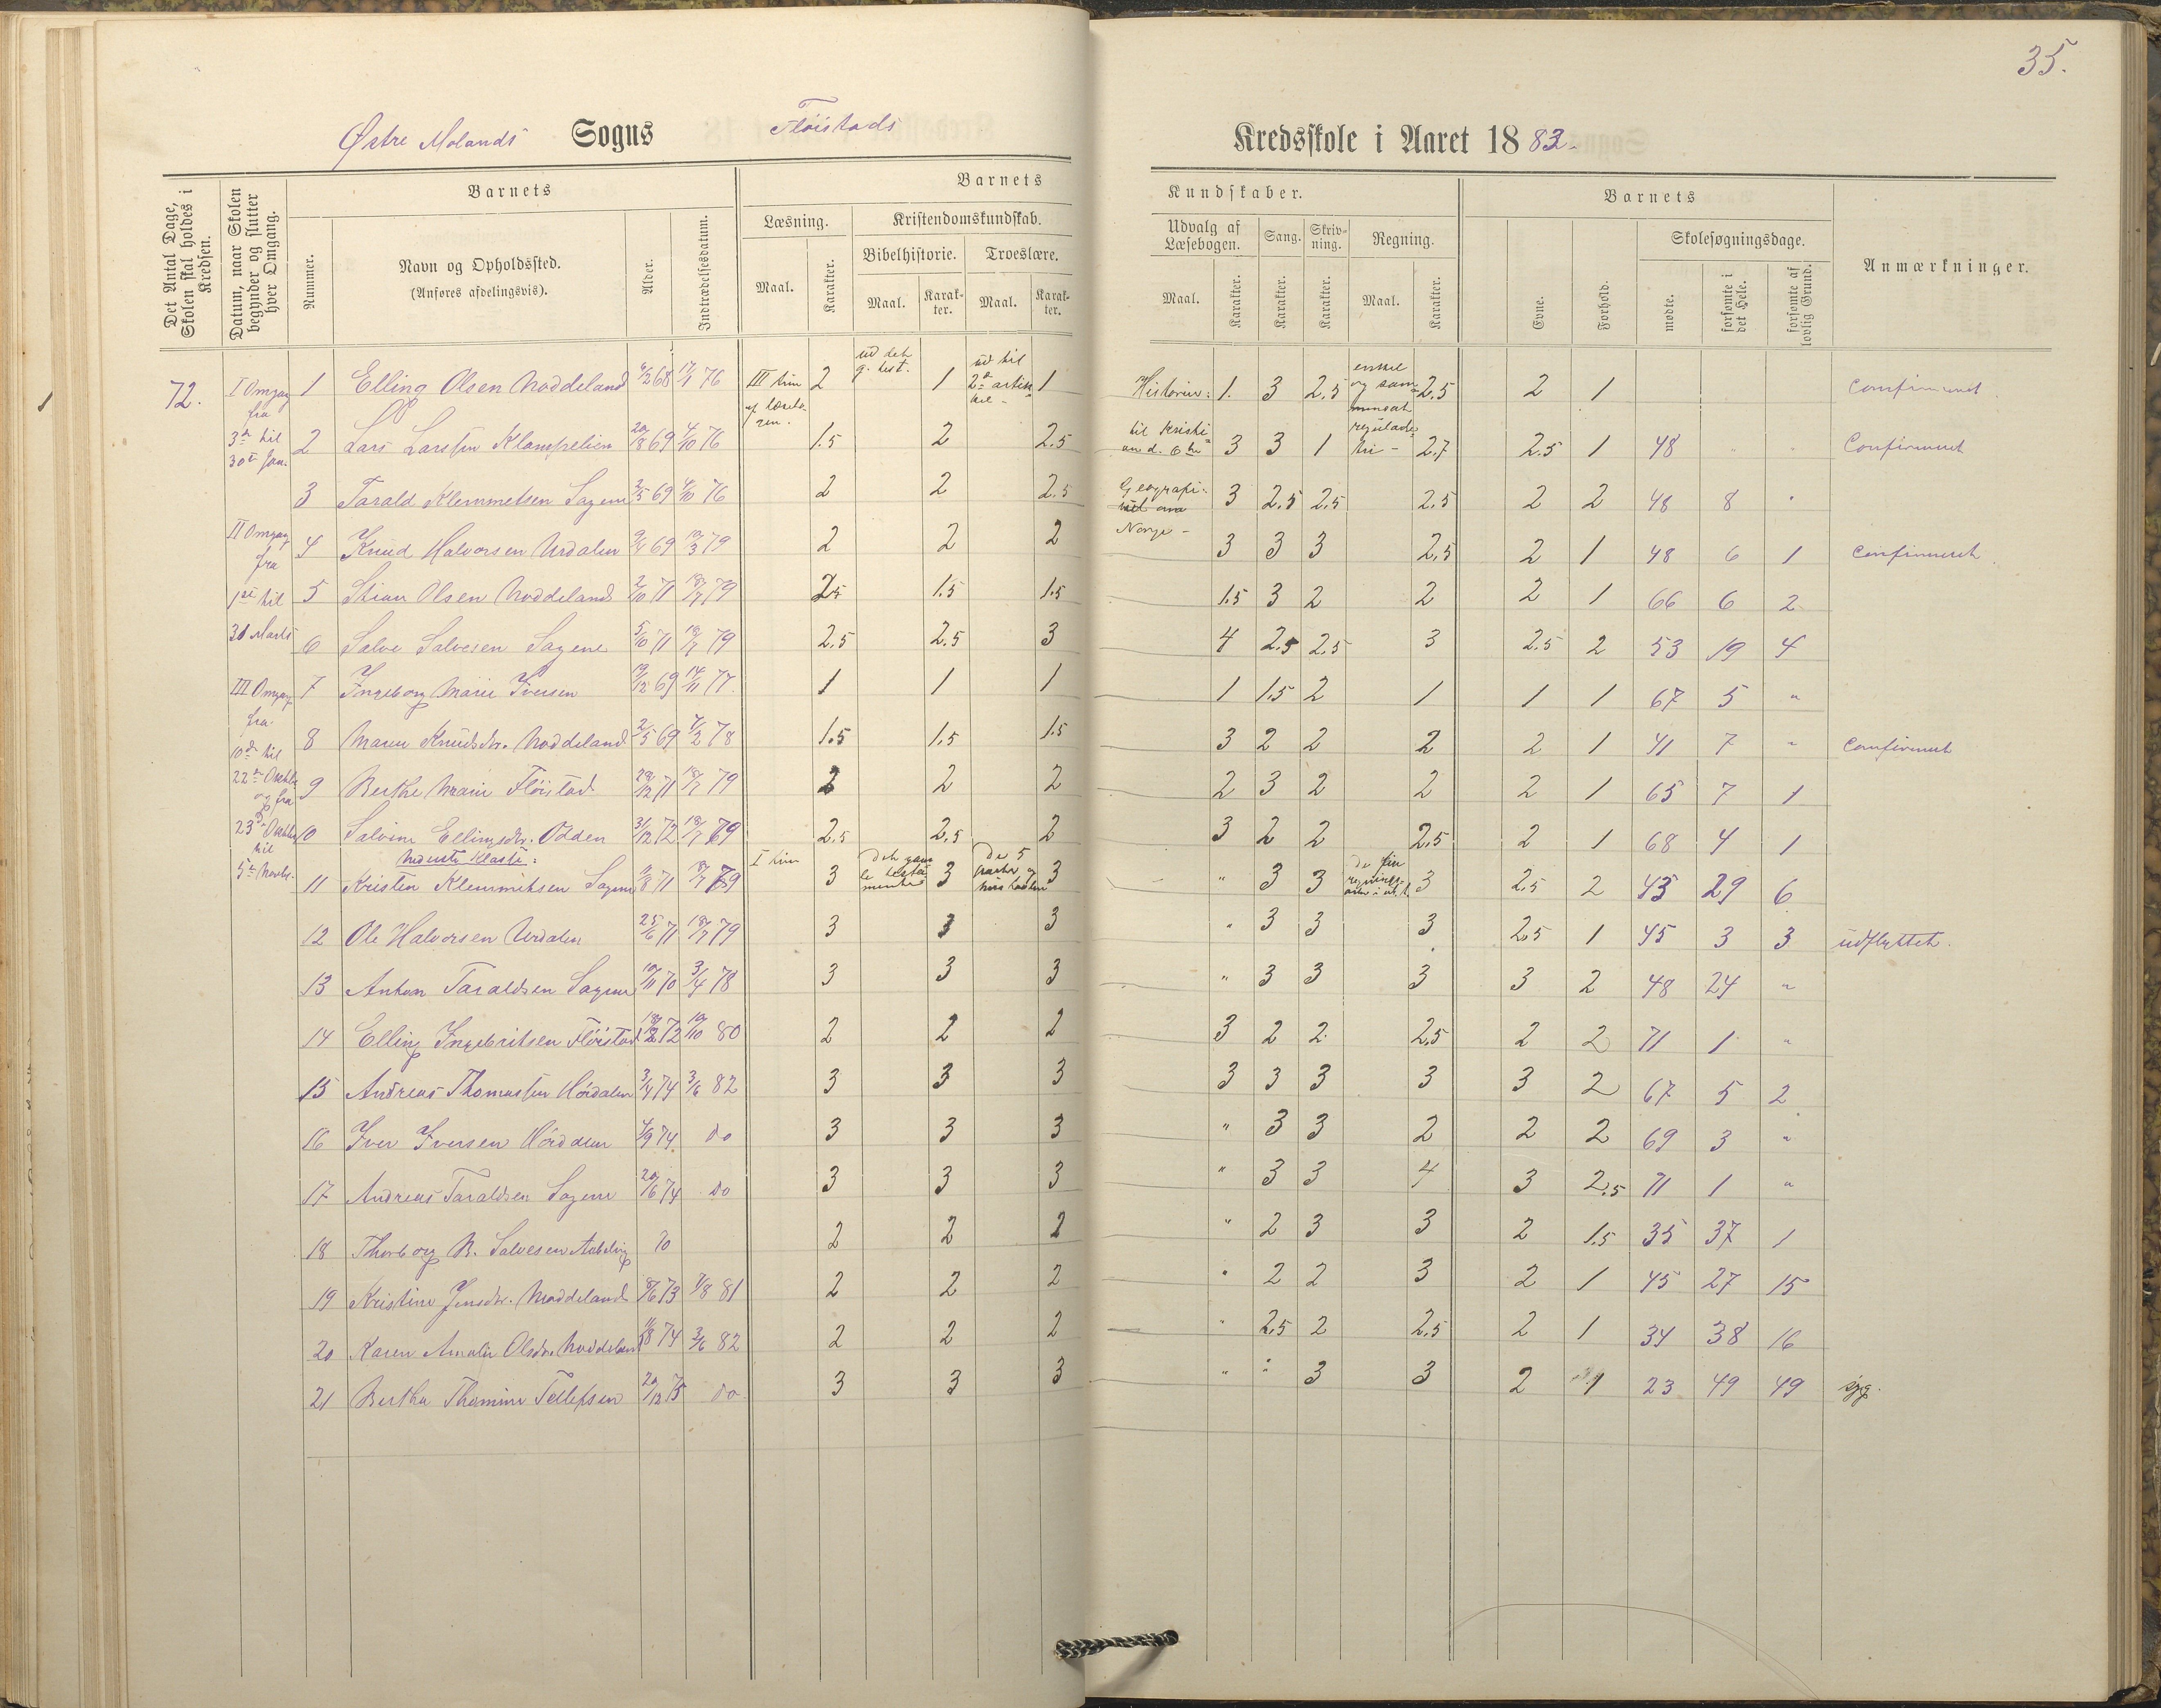 35.
Østre Molands Sogns Flöistads Kredsskole i Aaret 1883.
Det Antal Dage, Skolen skal holdes i Kredsen.
Datum, naar Skolen begynder og slutter hver Omgang.
Barnets
Nummer.
Navn og Opholdssted.
(Anføres afdelingsvis).
Alder.
Indtrædelsesdatum.
Barnets Kundskaber.
Læsning.
Maal.
Karakter.
Kristendomskundskab.
Bibelhistorie.
Maal.
Karakter.
Troeslære.
Maal.
Karakter.
Udvalg af Læsebogen.
Maal.
Karakter.
Sang.
Karakter.
Skrivning.
Karakter.
Regning.
Maal.
Karakter.
Barnets
Evne.
Forhold.
Skolesøgningsdage.
mødte.
forsømte i det Hele.
forsømte af lovlig Grund.
Anmærkninger.
72.
I Omgang fra 3die til 30te Jan.
II Omgang fra 1ste til 31 Marts
III Omgang fra 10de til 22de Octbr og fra 23de Octbr til 5te Novbr.
1 Elling Olsen Noddeland 6/2 68 17/1 76 III trin 2 ud det g. test. 1 ud til 2den artikkel 1 Historie: 1. 3 2.5 enkel og sammensat 2.5 2 1 Confirmeret
2 Lars Larssen Klampelien 20/8 69 4/10 76 1.5 2 2.5 til Kristi 3 3 1 reguladetri - 2.7 2.5 1 48 " " Confirmeret
3 Tarald Klemmetsen Sagene 2/5 69 4/10 76 2 2 2.5 Geografi: 3 2.5 2.5 2.5 2 2 48 8 "
Norge -
4 Knud Halvorsen Urdalen 9/4 69 19/3 79 2 2 2 3 3 3 2.5 2 1 48 6 1 Confirmeret
5 Stian Olsen Noddeland 2/10 71 18/7 79 2.5 1.5 1.5 1.5 3 2 2 2 1 66 6 2
6 Salve Salvesen Sagene 5/10 71 18/7 79 2.5 2.5 3 4 2.5 2.5 3 2.5 2 53 19 4
7 Ingeborg Marie Iversen 19/12 69 14/11 77 1 1 1 1 1.5 2 1 1 1 67 5 "
8 Maren Knudsdtr. Noddeland 2/5 69 7/2 78 1.5 1.5 1.5 3 2 2 2 2 1 41 7 " Confirmeret
9 Berthe Marie Flöistad 29/12 71 18/7 79 2 2 2 2 3 2 2 2 1 65 7 1
10 Salvine Ellingsdtr. Odden 31/12 72 18/7 79 2.5 2.5 2 3 2 2 2.5 2 1 68 4 1
Nederste Klasse:
11 Kristen Klemmetsen Sagene 11/8 71 18/7 79 I trin 3 det gamle testamente 3 de 5 parter og hustavlen 3 " 3 3 3 2.5 2 43 29 6
12 Ole Halvorsen Urdalen 25/6 71 18/7 79 3 3 3 " 3 3 3 2.5 1 45 3 3 udflyttet.
13 Anton Taraldsen Sagene 10/11 70 3/4 78 3 3 3 " 3 3 3 3 2 48 24 "
14 Elling Ingebritsen Flöistad 72 19/10 80 2 2 2 3 2 2 2.5 2 2 71 1 "
15 Andreas Thomassen Hördalen 3/4 74 3/6 82 3 3 3 3 3 3 3 3 2 67 5 2
16 Iver Iversen Hörddlen 4/9 74. do 3 3 3 " 3 3 2 2 2 69 3 "
17 Andreas Taraldsen Sagene 20/6 74 do 3 3 3 " 3 3 4 3 2.5 71 1 "
18 Thorborg B. Salvesen 2 2 2 " 2 3 3 2 1.5 35 37 1
19 Kristine Jensdtr. Noddeland 8/6 73 7/8 81 2 2 2 " 2 2 3 2 1 45 27 15
20 Karen Amalie Olsdtr. Noddeland 11/8 74 3/6 82 2 2 2 " 2.5 2 2.5 2 1 34 38 16
21 Bertha Thomine Tellefsen 20/12 75 do 3 3 3 " " 3 3 2 1 23 49 49 syg.